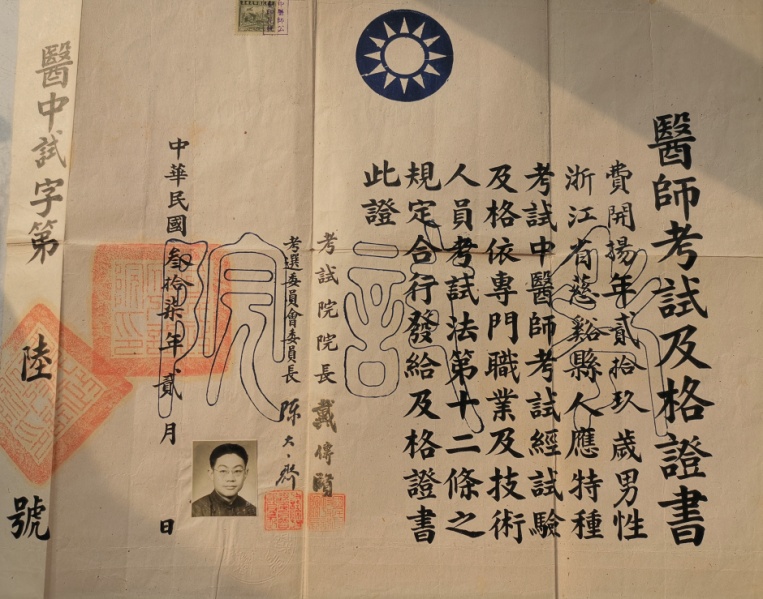 醫師考試及格證書
費開揚年貳拾玖歲男性
浙江省慈谿縣人應特種
考試中醫師考試經試驗
及格依專門職業及技術
人員考試法第十二條之
規定合行發給及格證書
此證
考試院院長 戴傳賢
考選委員會委員長 陳大齊
中華民國叁拾柒年貳月 日
醫中試字第 陸 號